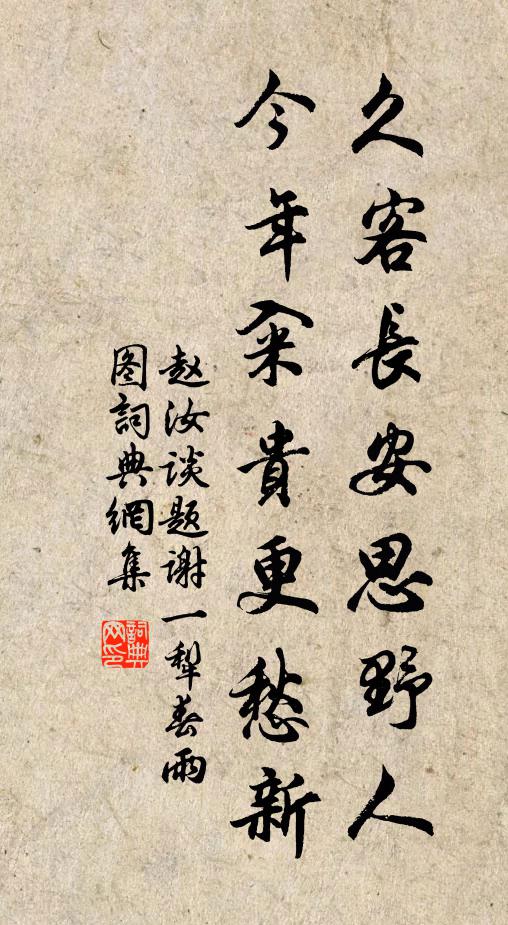 久客長安思野人
今年籴貴更愁新
赵汝谈题谢一犁春雨
图詞典網集
詞典
网印